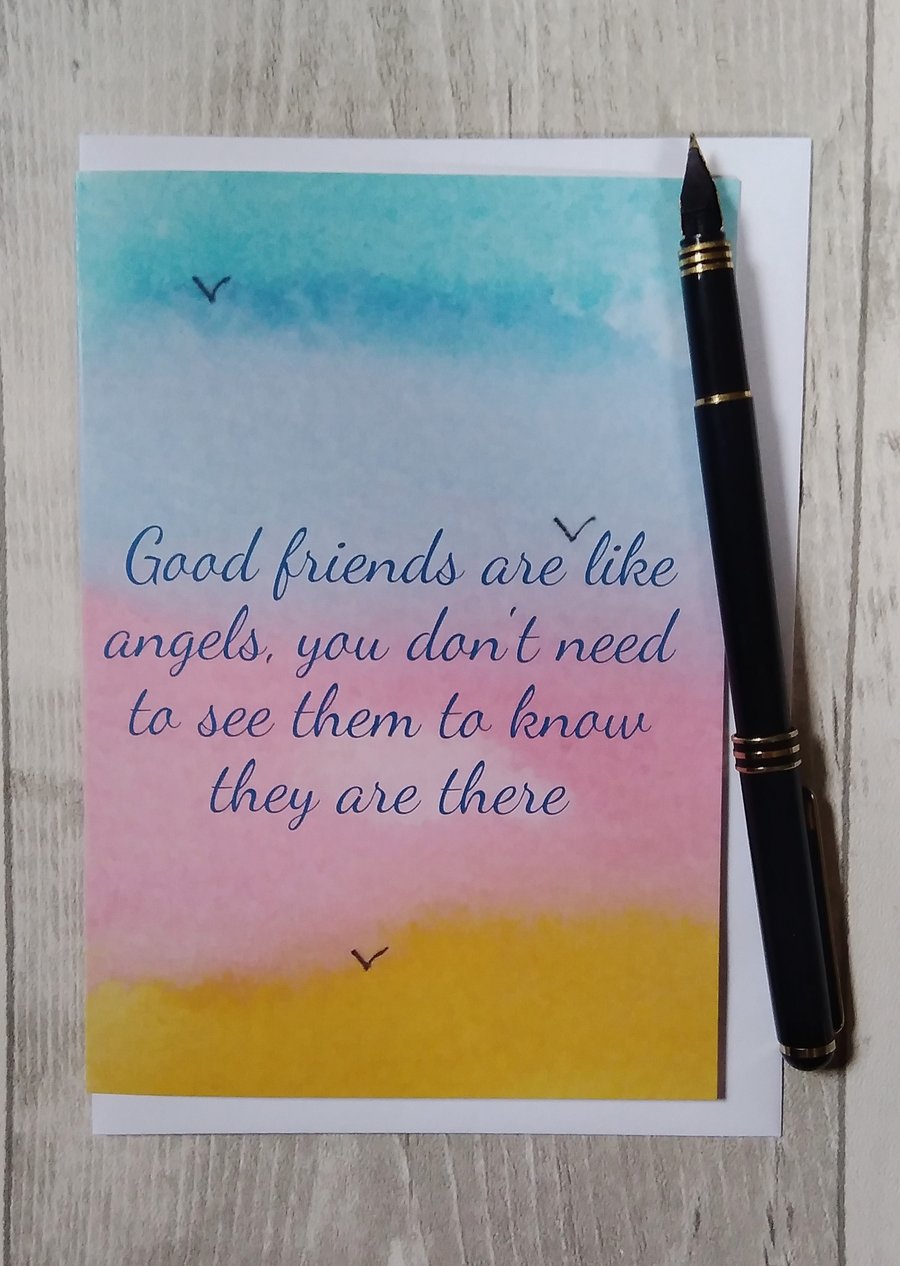 Good friends are like
angels, you don't need
to see them to know
they are there